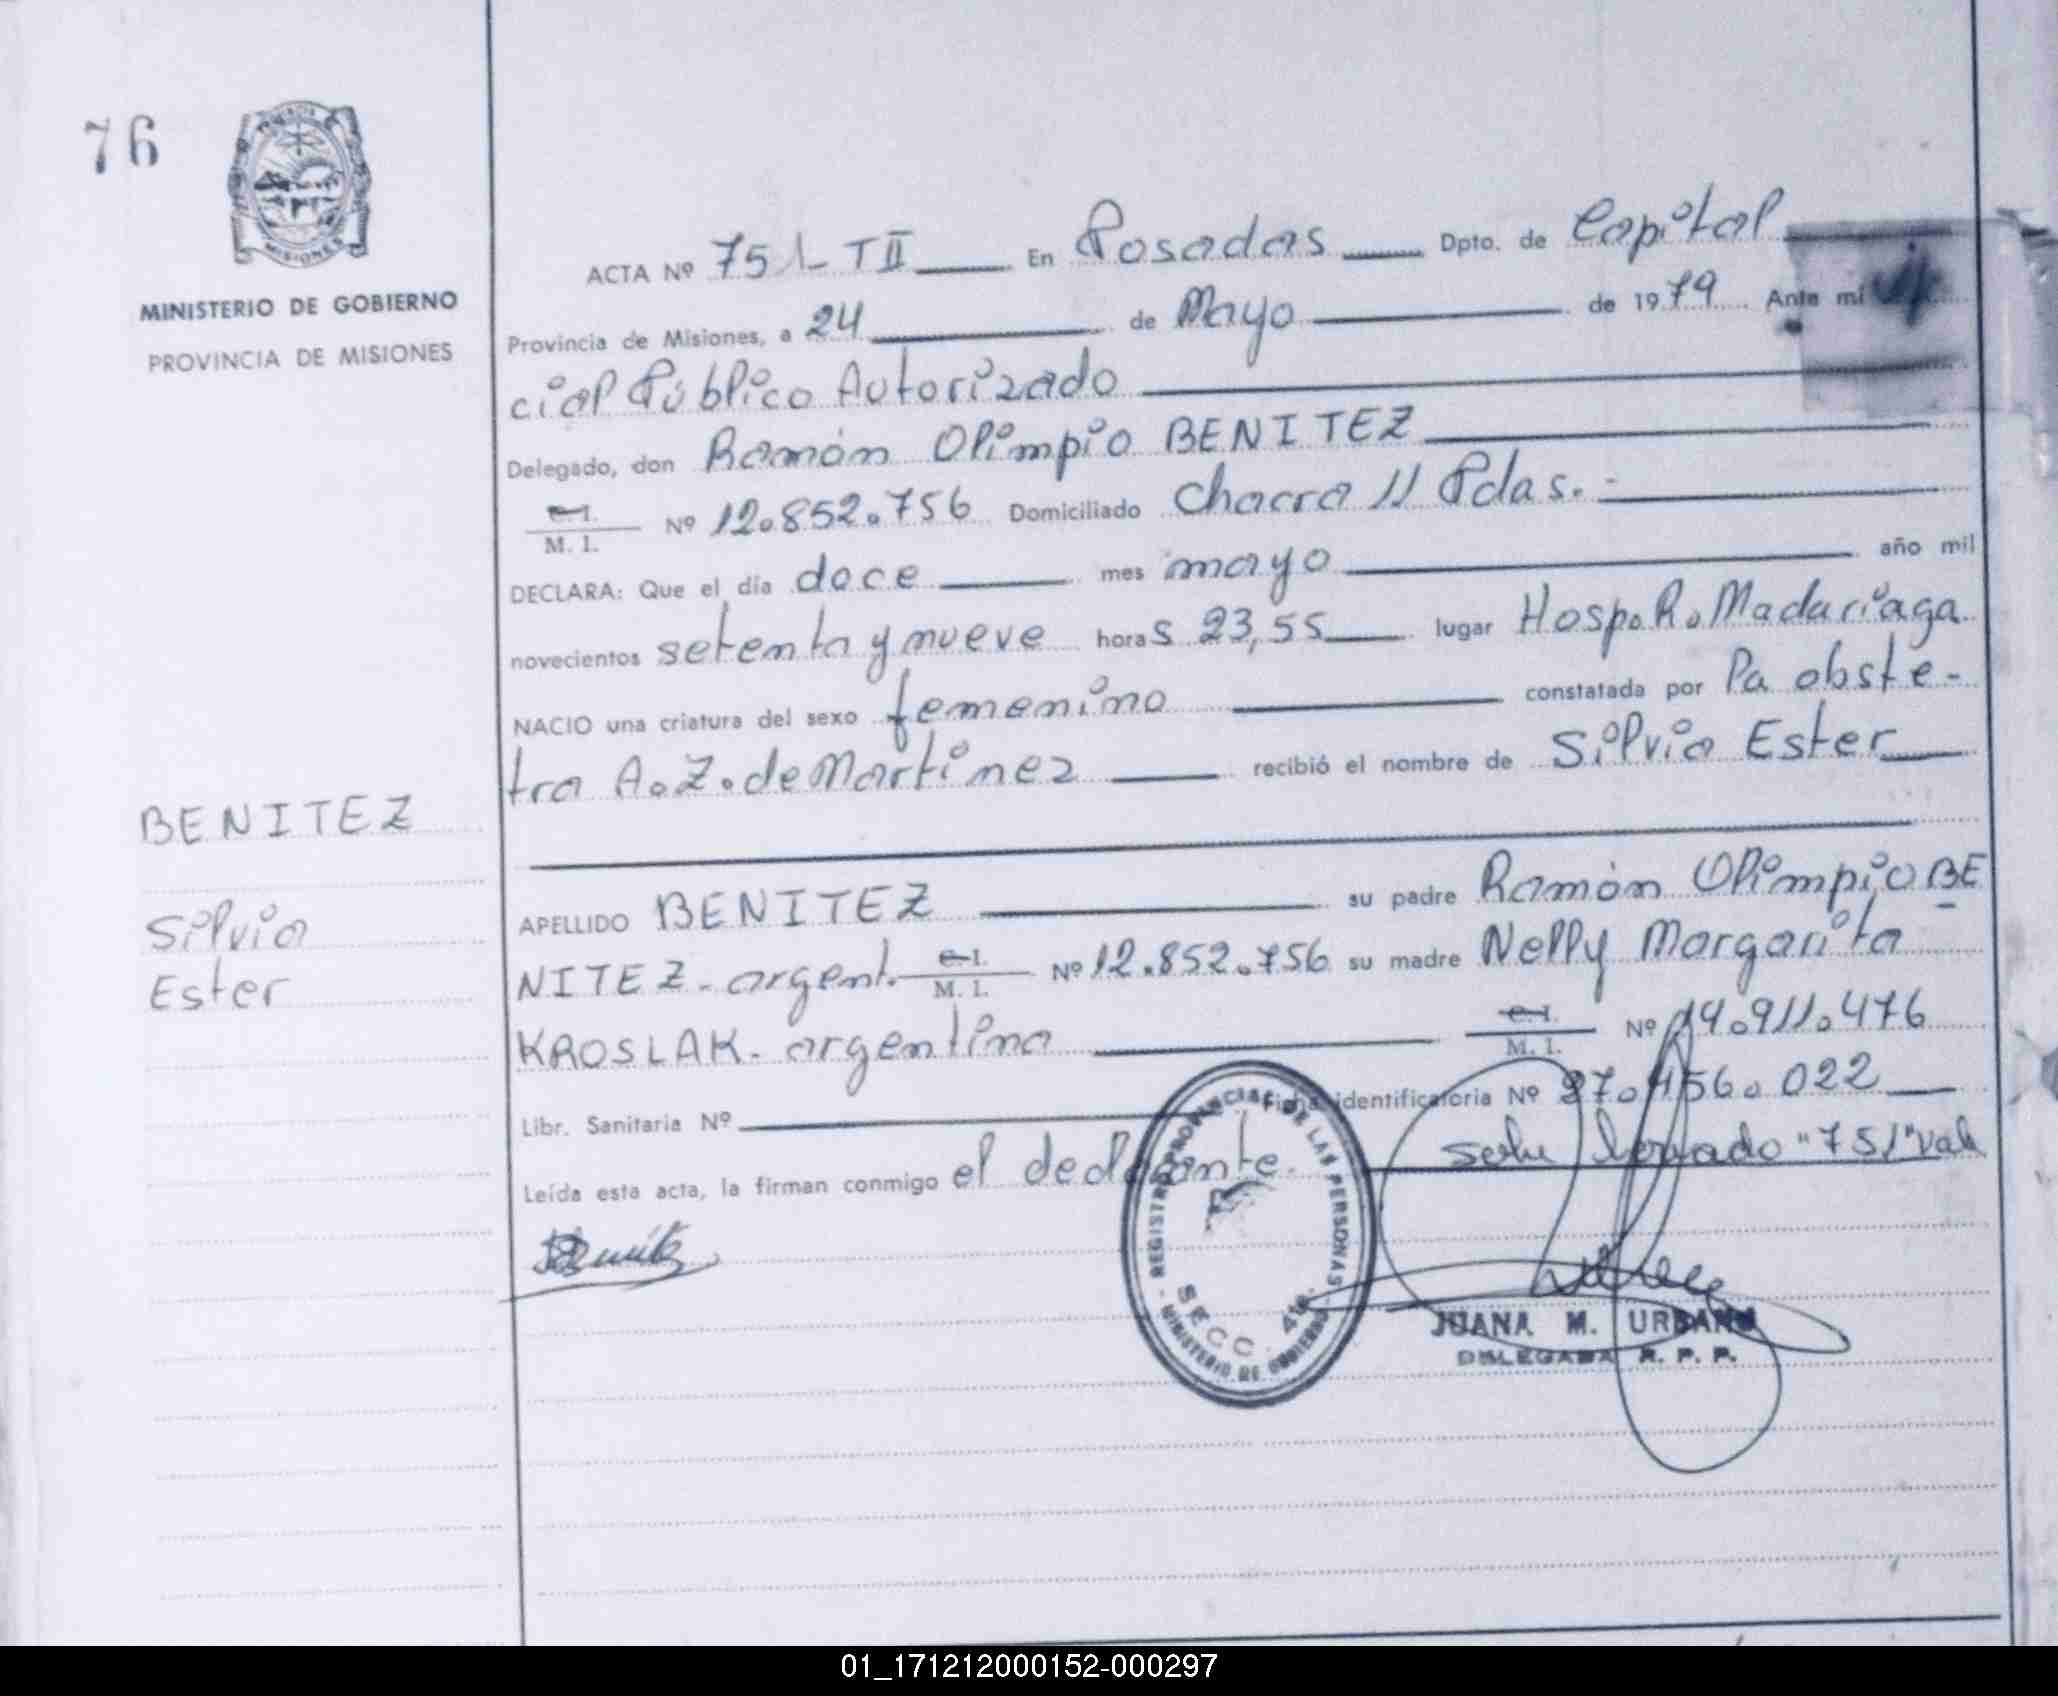 76
MINISTERIO DE GOBIERNO
PROVINCIA DE MISIONES
ACTA Nº 751 - TII En Posadas Dpto. de Capital
Provincia de Misiones, a 24 de Mayo de 1979 Ante mi
cial Público Autorizado
Delegado, don Ramón Olimpio BENITEZ
C. I.
M. I. Nº 12.852.756 Domiciliado Chacra 11 Pdas.-
DECLARA: Que el día doce mes mayo año mil
novecientos setenta y nueve horas 23,55 lugar Hosp. R. Madariaga
NACIO una criatura del sexo femenino constatada por la obste-
tra A. Z. de Martinez recibió el nombre de Silvia Ester
BENITEZ
Silvia
Ester
APELLIDO BENITEZ su padre Ramón Olimpio BE
NITEZ - argent. C. I.
M. I. Nº 12.852.756 su madre Nelly Margarita
KROSLAK - argentina C. I.
M. I. Nº 14.911.476
Libr. Sanitaria Nº Ficha identificatoria Nº 27.456.022
Leída esta acta, la firman conmigo el declarante. "751" vale
REGISTRO PROVINCIAL DE LAS PERSONAS
SECC. 4ta.
- MINISTERIO DE GOBIERNO -
JUANA M. URBANO
DELEGADA R. P. P.
01_171212000152-000297